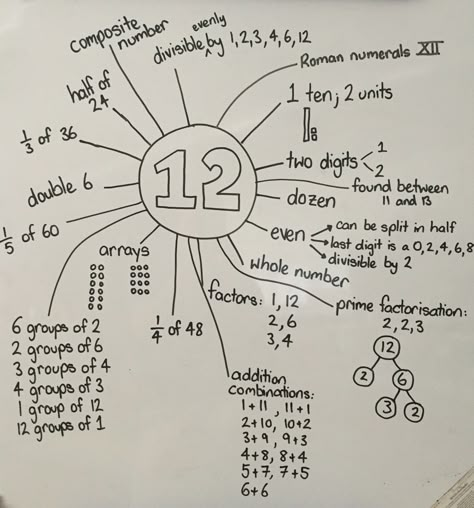 12
composite
number
evenly
divisible by 1,2,3,4,6,12
Roman numerals XII
1 ten; 2 units
two digits
1
2
found between
11 and 13
dozen
even
can be split in half
last digit is a 0,2,4,6,8
divisible by 2
whole number
prime factorisation:
2,2,3
12
2
6
3
2
factors: 1,12
2,6
3,4
addition
combinations:
1+11, 11+1
2+10, 10+2
3+9, 9+3
4+8, 8+4
5+7, 7+5
6+6
1/4 of 48
arrays
6 groups of 2
2 groups of 6
3 groups of 4
4 groups of 3
1 group of 12
12 groups of 1
1/5 of 60
double 6
1/3 of 36
half of
24